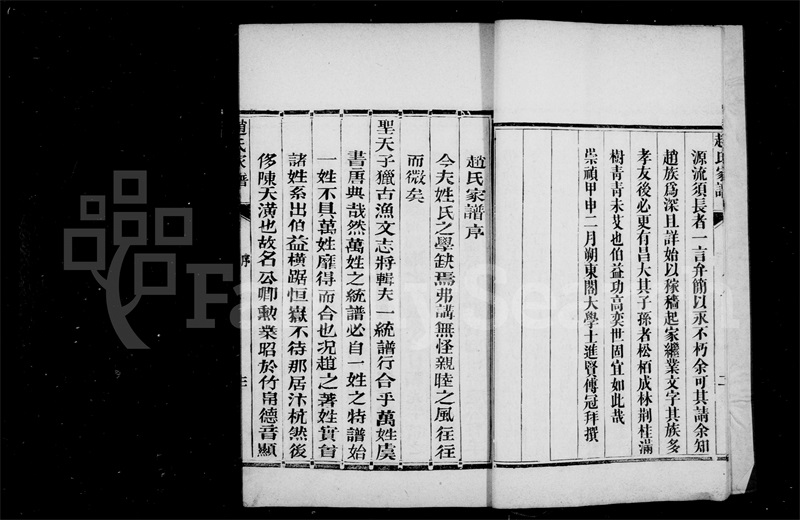 趙氏家譜
源流須長者一言弁簡以求不朽余可其請余知
趙族為深且詳始以稼穡起家繼業文字其族多
孝友後必更有昌大其子孫者松栢成林荆桂滿
樹青青未艾也伯益功高奕世固宜如此哉
崇禎甲申二月朔東閣大學士進賢傅冠拜撰
二
趙氏家譜序
今夫姓氏之學缺焉弗講無怪親睦之風往往
而微矣
聖天子獵古漁文志將輯夫一統譜行合乎萬姓虞
書唐典哉然萬姓之統譜必自一姓之特譜始
一姓不具萬姓靡得而合也況趙之著姓實首
諸姓系出伯益橫踞恒嶽不待那居汴杭然後
侈陳天潢也故名公卿勲業昭於竹帛德音顯
趙氏家譜
序
三
FamilySearch